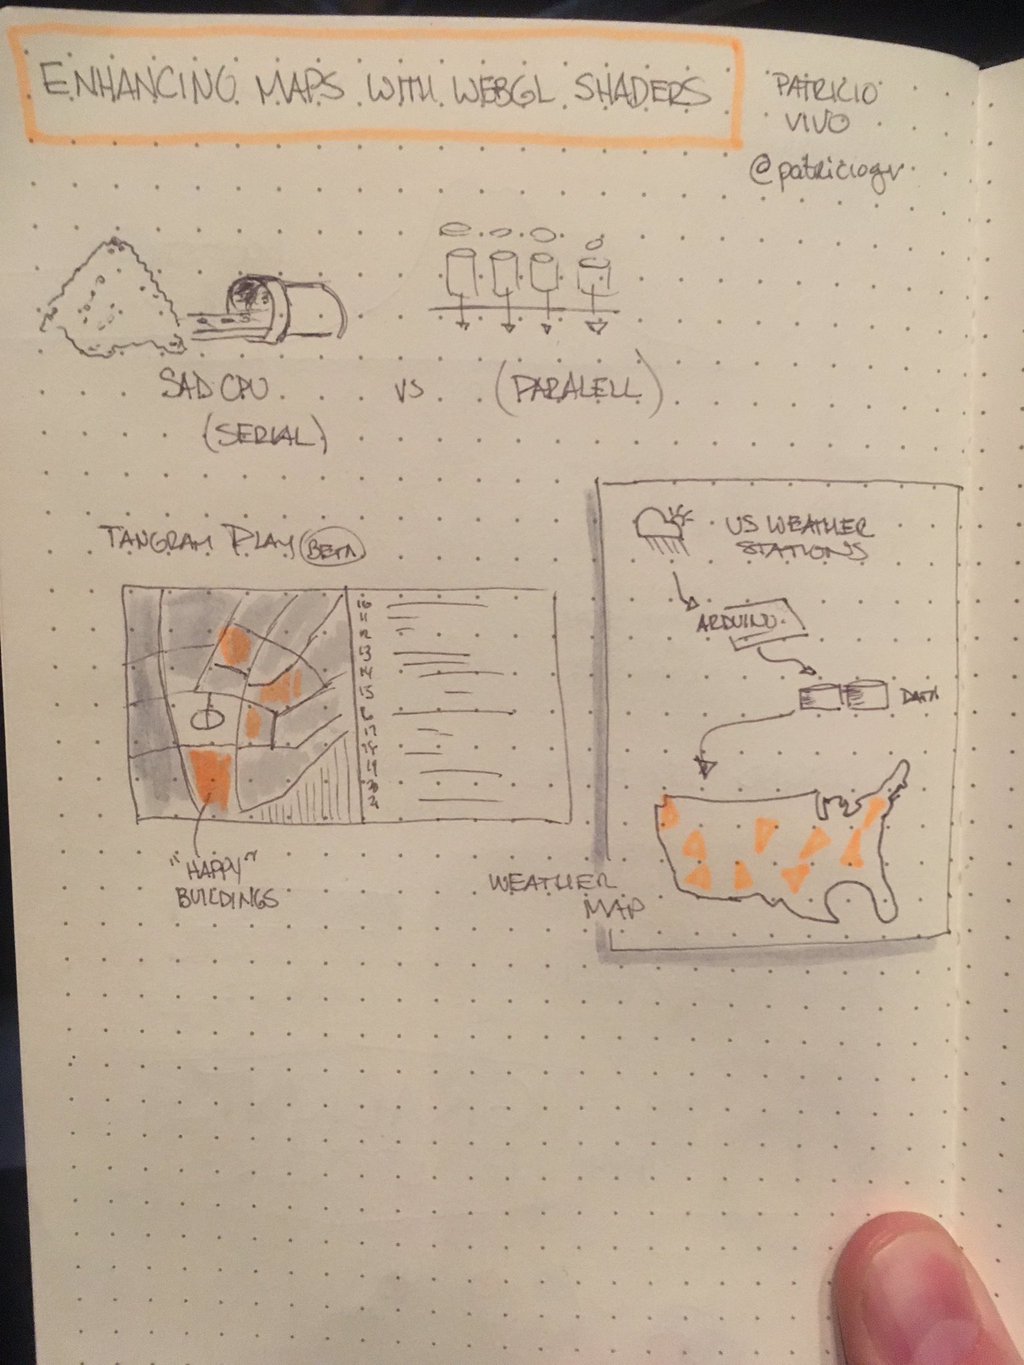 ENHANCING MAPS WITH WEBGL SHADERS
PATRICIO
VIVO
@patriciogv
SAD CPU
(SERIAL)
VS
(PARALELL)
TANGRAM PLAY BETA
10
11
12
13
14
15
16
17
18
19
20
21
"HAPPY"
BUILDINGS
US WEATHER
STATIONS
ARDUINO
DATA
WEATHER
MAP